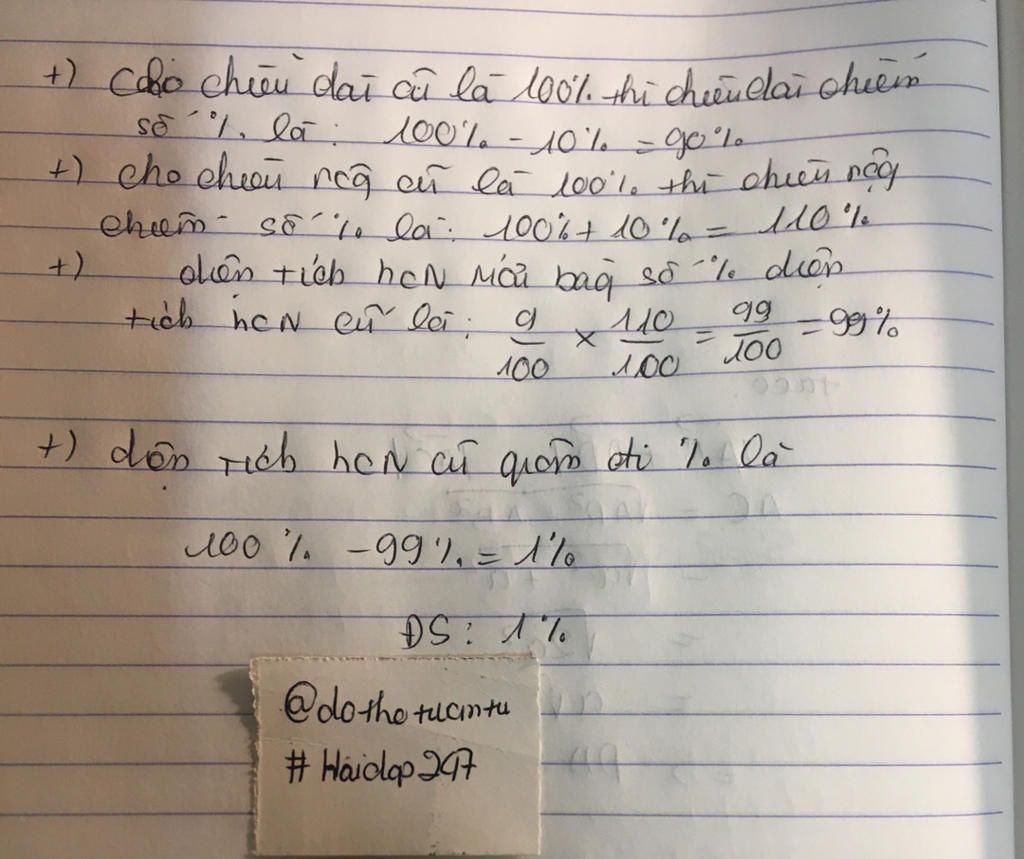 +) Cho chiều dài cũ là 100% thì chiều dài chiếm
số % là: 100% - 10% = 90%
+) cho chiều rộg cũ là 100% thì chiều rộg
chiếm số % là: 100% + 10% = 110%
+) diện tích hcN Mới bag số % diện
tích hcN cũ là: 9/100 × 110/100 = 99/100 = 99%
+) diện tích hcN cũ giảm đi % là
100% - 99% = 1%
ĐS: 1%
@dothotuantu
# Hoidap247